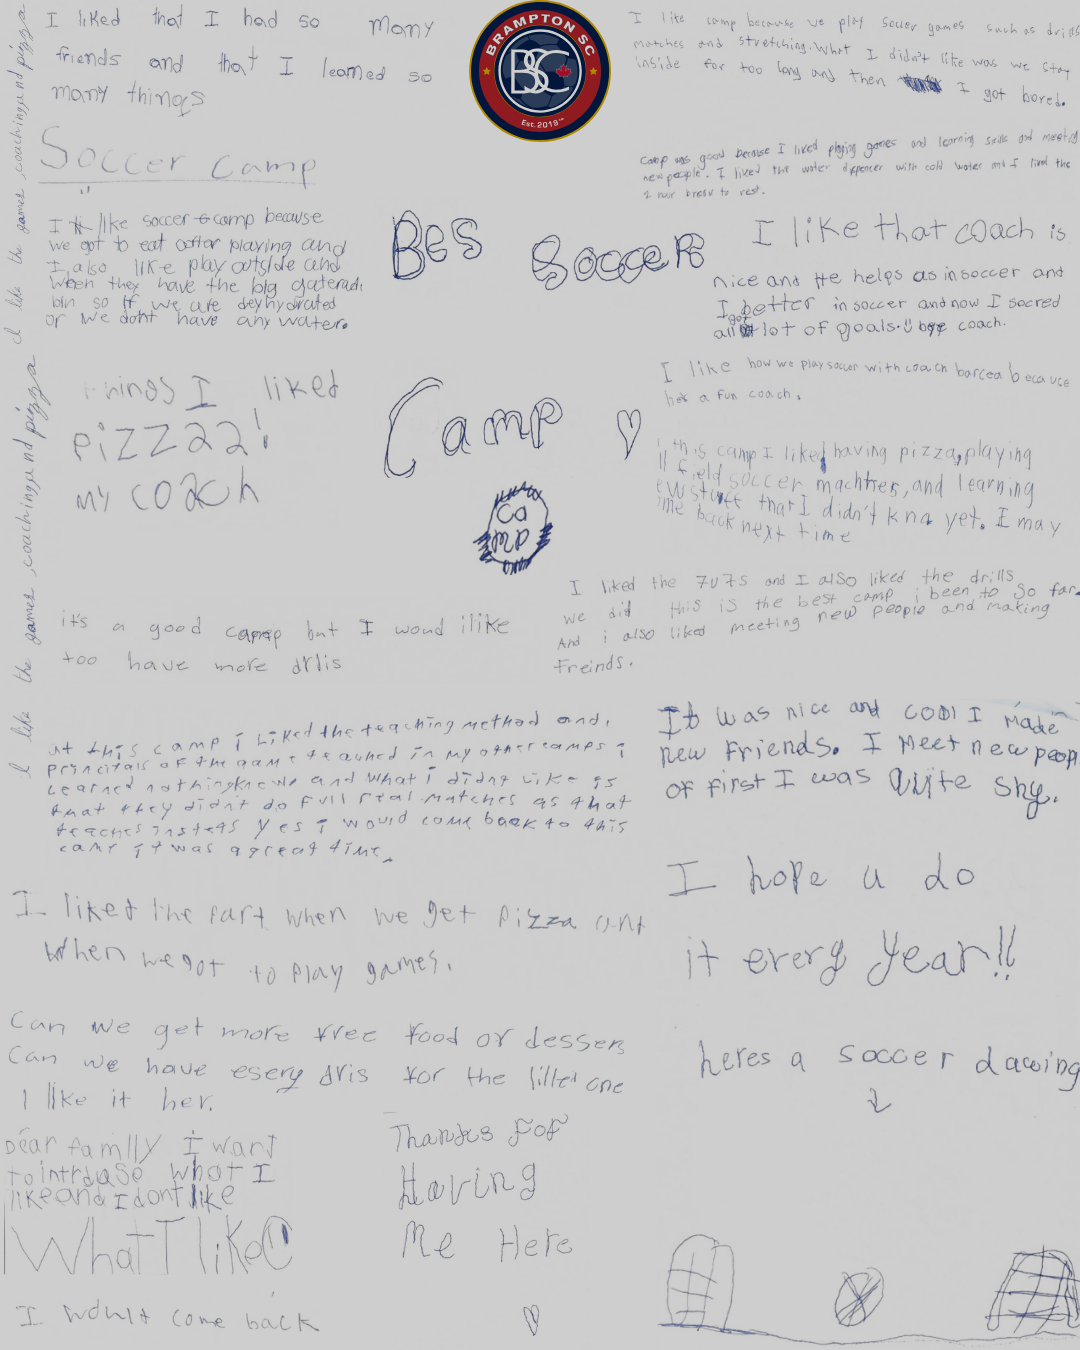 I liked that I had so many
friends and that I learned so
many things
BRAMPTON SC
BSC
Est. 2019™
I like camp because we play souer games such as drills
matches and stretching. What I didn't like was we stay
inside for too long and then I got bored.
Soccer camp
camp was good because I liked playing games and learning skills and meeting
new people. I liked the water dispencer with cold water and I liked the
2 hour break to rest.
I like soccer camp because
we got to eat aftar playing and
I also like play outside and
when they have the big gateradi
bin so if we are deyhydrated
or we donht have any water.
Bes Soccer
Camp
Ca
mp
I like that coach is
nice and He helps as in soccer and
I got better in soccer and now I socred
all lot of goals. bye coach.
I like how we play soccer with coach barcea because
hes a fun coach.
things I liked
pizzaa!
my coach
this camp I liked having pizza, playing
ll field soccer machtes, and learning
ew stuff that I didn't kna yet. I may
ome back next time
I liked the 7v7s and I also liked the drills
we did this is the best camp i been to so far.
And i also liked meeting new people and making
Freinds.
it's a good camp but I woud ilike
too have more drlis
I like the games, coaching and pizza I like the games, coaching and pizza
at this camp i Liked the teaching method and,
principals of the game teached in my other camps i
Learned nothing and what i didnt Like is
that they didn't do full real matches as that
teaches insteas yes i would come back to this
camp it was a great time.
It was nice and cool I made
new friends. I meet new peopl
of first I was Quite shy.
I hope u do
it every year!!
I liked the part when we get pizza and
When we got to play games.
Can we get more free food or dessers
Can we have esery dris for the littel one
I like it her.
heres a soccer dawing
Dear familly i want
to intrduse what I
like and I dont like
What I like
Thanks For
Having
Me Here
I wonlt come back